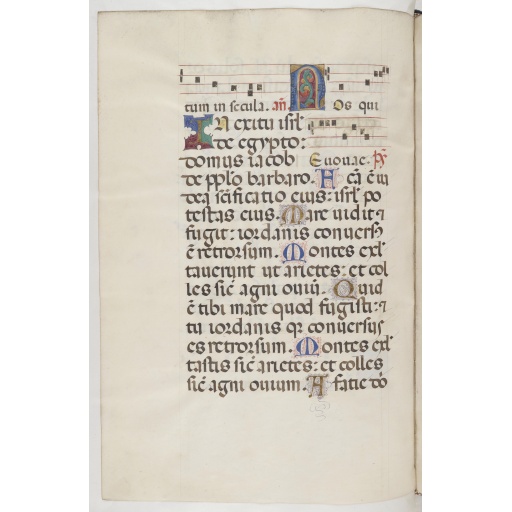 tum in secula. añ. Nos qui
In exitu isrł
de egypto:
domus iacob Euouae. ps
de pplo barbaro. Hcã ẽ iu
dea scificatio eius: isrł po
testas eius. Mare uidit ⁊
fugit: iordanis conuersꝰ
ẽ retrorsum. Montes exl
tauerunt ut arietes: et col
les sic̃ agni ouiũ. Quid
ẽ tibi mare quod fugisti: ⁊
tu iordanis qr conuersus
es retrorsum. Montes exl
tastis sic̃ arietes: et colles
sic̃ agni ouium. A facie dõ